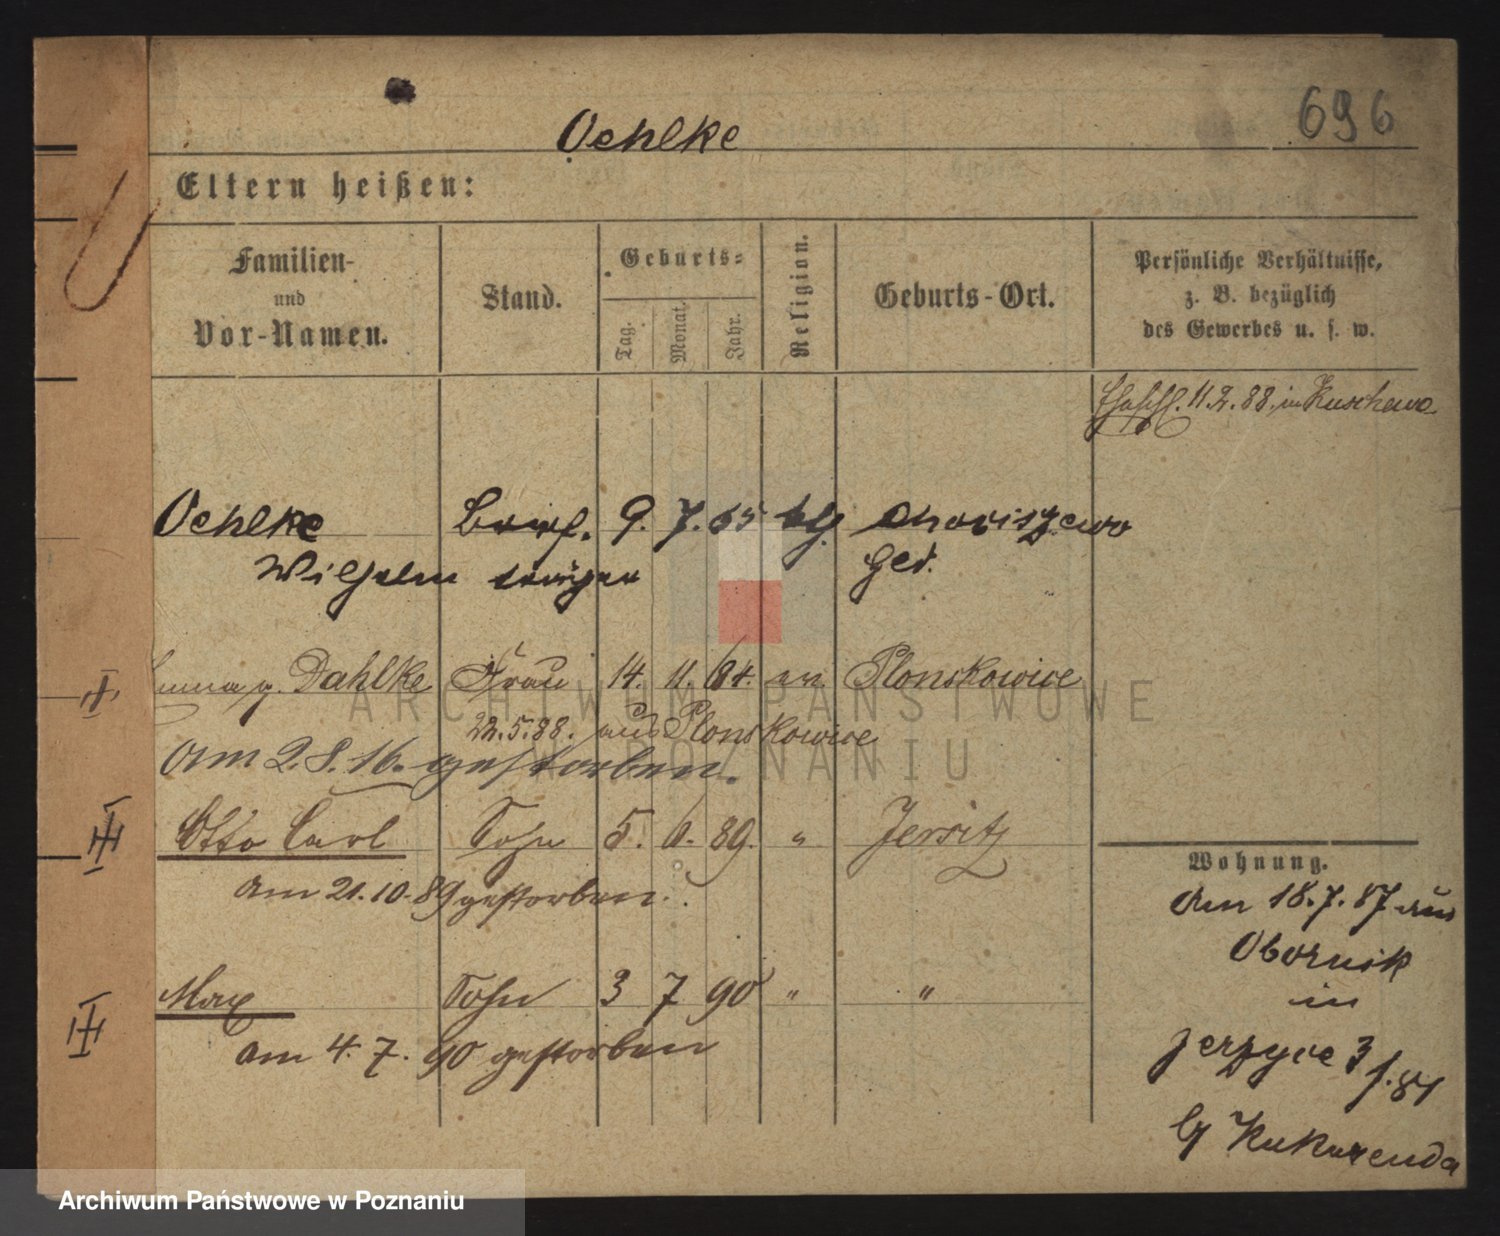 696
Oehlke
Eltern heißen:
Familien-
und
Vor-Namen.
Stand.
Geburts=
Tag.
Monat.
Jahr.
Religion.
Geburts-Ort.
Persönliche Verhältnisse,
z. B. bezüglich
des Gewerbes u. s. w.
11.2.88. in Kuschewo
Oehlke Brief. 9. 7. 65
Wilhelm träger
g. Dahlke Frau 14. 11. 64. ev Plonskowice
22.5.88. aus Plonskowice
am 2.8.16. gestorben.
III Otto Carl Sohn 5. 6. 89. " Jersitz
am 21.10.89 gestorben.
III Max Sohn 3 7 90 " "
am 4. 7. 90 gestorben
Wohnung.
am 18.7.87 aus
Obornik
in
Jerzyce 3
Kukurenda
ARCHIWUM PAŃSTWOWE
W POZNANIU
Archiwum Państwowe w Poznaniu